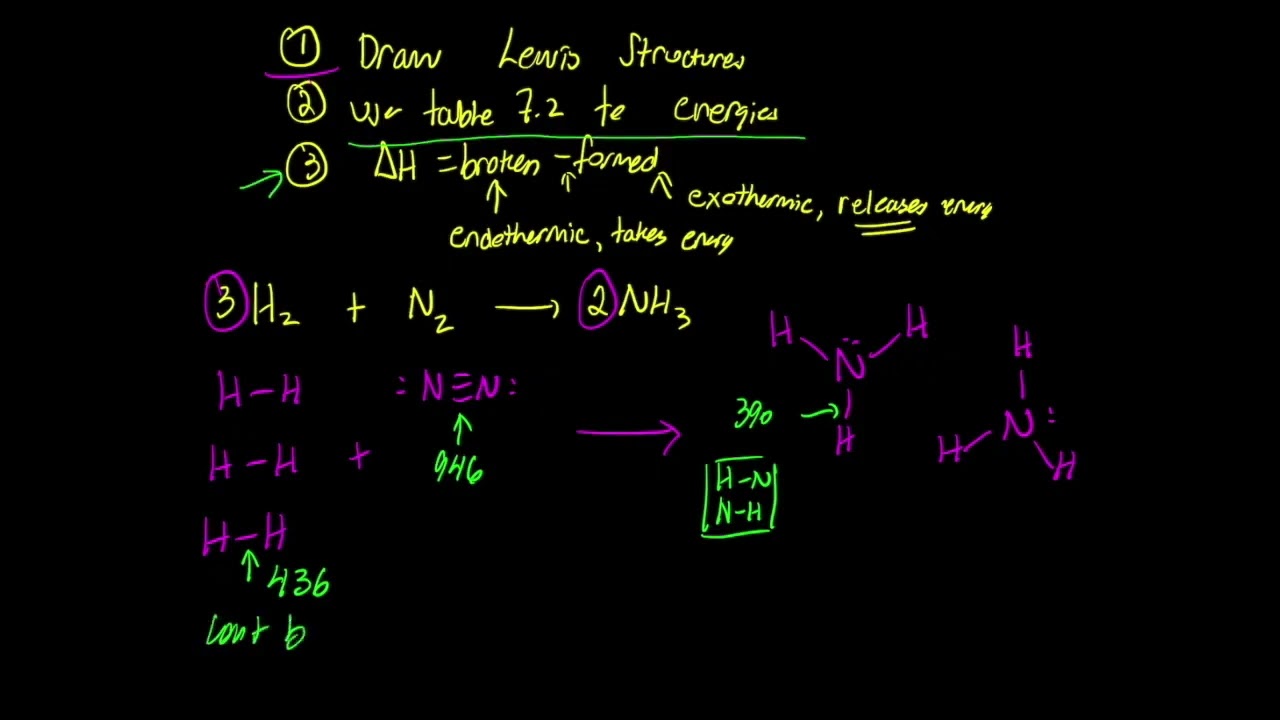 ① Draw Lewis Structures
② use table 7.2 to energies
③ ΔH = broken - formed
exothermic, releases energy
endethermic, takes energy
3H₂ + N₂ → 2NH₃
H N̈ H
H
H-H :N≡N:
390 →
H
H
H-H + 946 →
H N: H
H-N
N-H
H-H
436
count b